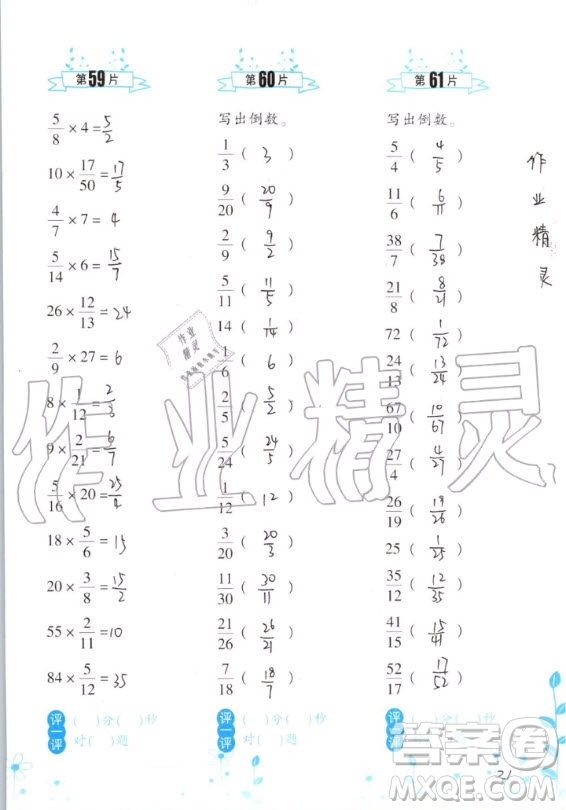 第59片
5/8 × 4 = 5/2
10 × 17/50 = 17/5
4/7 × 7 = 4
5/14 × 6 = 15/7
26 × 12/13 = 24
2/9 × 27 = 6
8 × 1/12 = 2/3
9 × 2/21 = 6/7
5/16 × 20 = 25/4
18 × 5/6 = 15
20 × 3/8 = 15/2
55 × 2/11 = 10
84 × 5/12 = 35
评一评
( )分( )秒
对( )题
第60片
写出倒数。
1/3 ( 3 )
9/20 ( 20/9 )
2/9 ( 9/2 )
5/11 ( 11/5 )
14 ( 1/14 )
1/6 ( 6 )
2/5 ( 5/2 )
5/24 ( 24/5 )
1/12 ( 12 )
3/20 ( 20/3 )
11/30 ( 30/11 )
21/26 ( 26/21 )
7/18 ( 18/7 )
评一评
( )分( )秒
对( )题
第61片
写出倒数。
5/4 ( 4/5 )
11/6 ( 6/11 )
38/7 ( 7/38 )
21/8 ( 8/21 )
72 ( 1/72 )
24/13 ( 13/24 )
67/10 ( 10/67 )
27/4 ( 4/27 )
26/19 ( 19/26 )
25 ( 1/25 )
35/12 ( 12/35 )
41/15 ( 15/41 )
52/17 ( 17/52 )
( )分( )秒
对( )题
作业精灵
作业精灵
作业精灵
21
答案圈
MXQE.COM